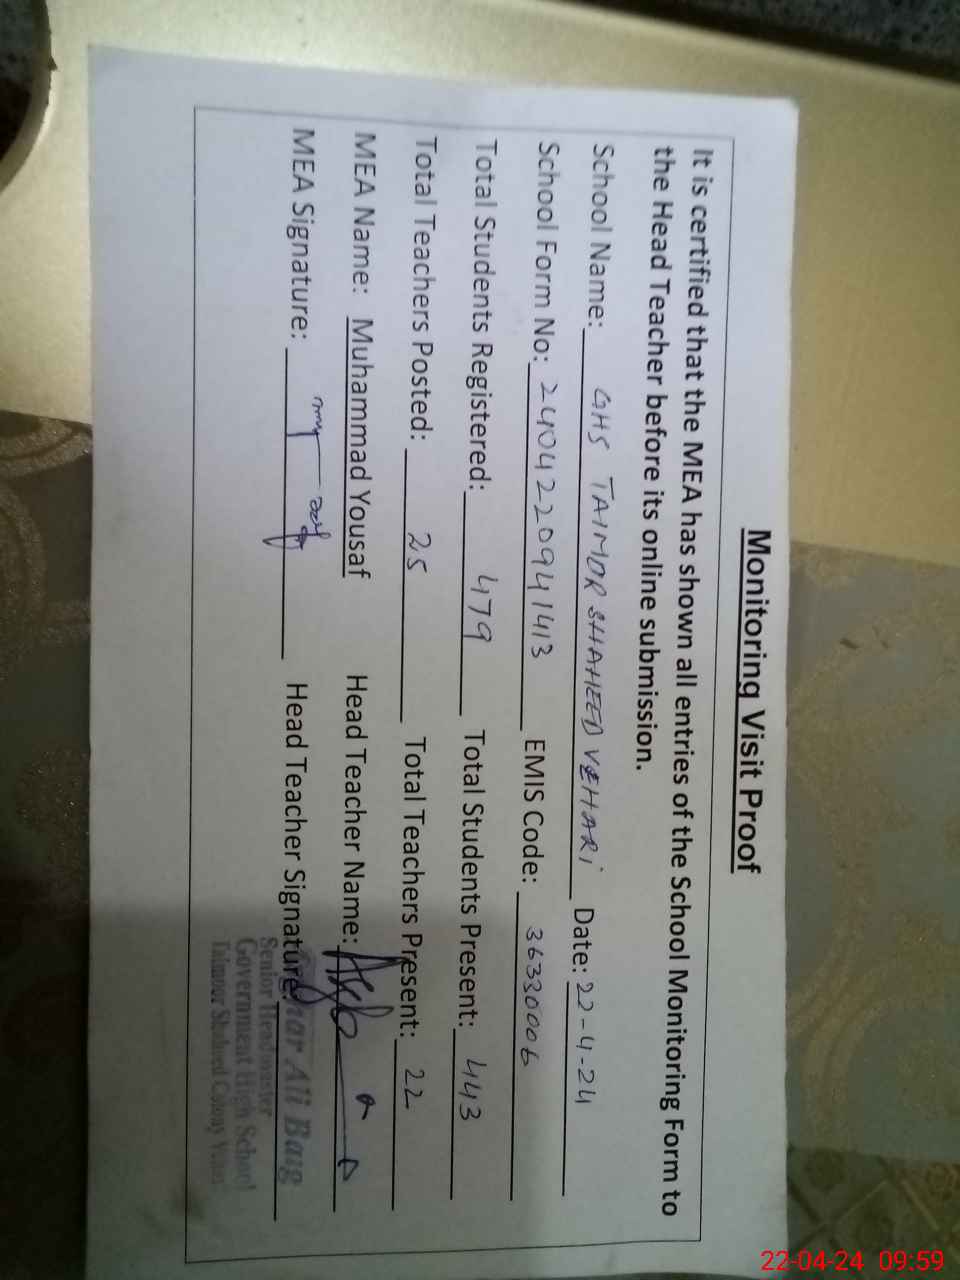 Monitoring Visit Proof
It is certified that the MEA has shown all entries of the School Monitoring Form to
the Head Teacher before its online submission.
School Name: GHS TAIMOR SHAHEED VEHARI Date: 22-4-24
School Form No: 2404220941413 EMIS Code: 36330006
Total Students Registered: 479 Total Students Present: 443
Total Teachers Posted: 25 Total Teachers Present: 22
MEA Name: Muhammad Yousaf Head Teacher Name:
MEA Signature: Head Teacher Signature:
Ali Baig
Senior Headmaster
Government High School
Taimour Shaheed Colony
22-04-24 09:59